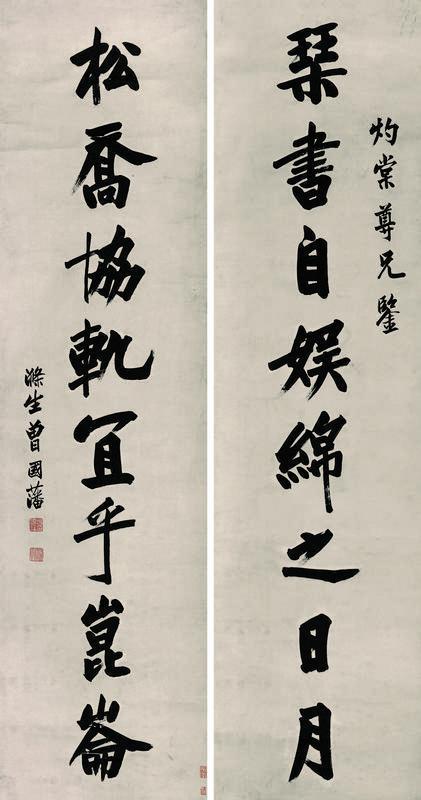 灼棠尊兄鑒
琹書自娛綿之日月
松喬協軌冝乎崑崙
滌生曾國藩